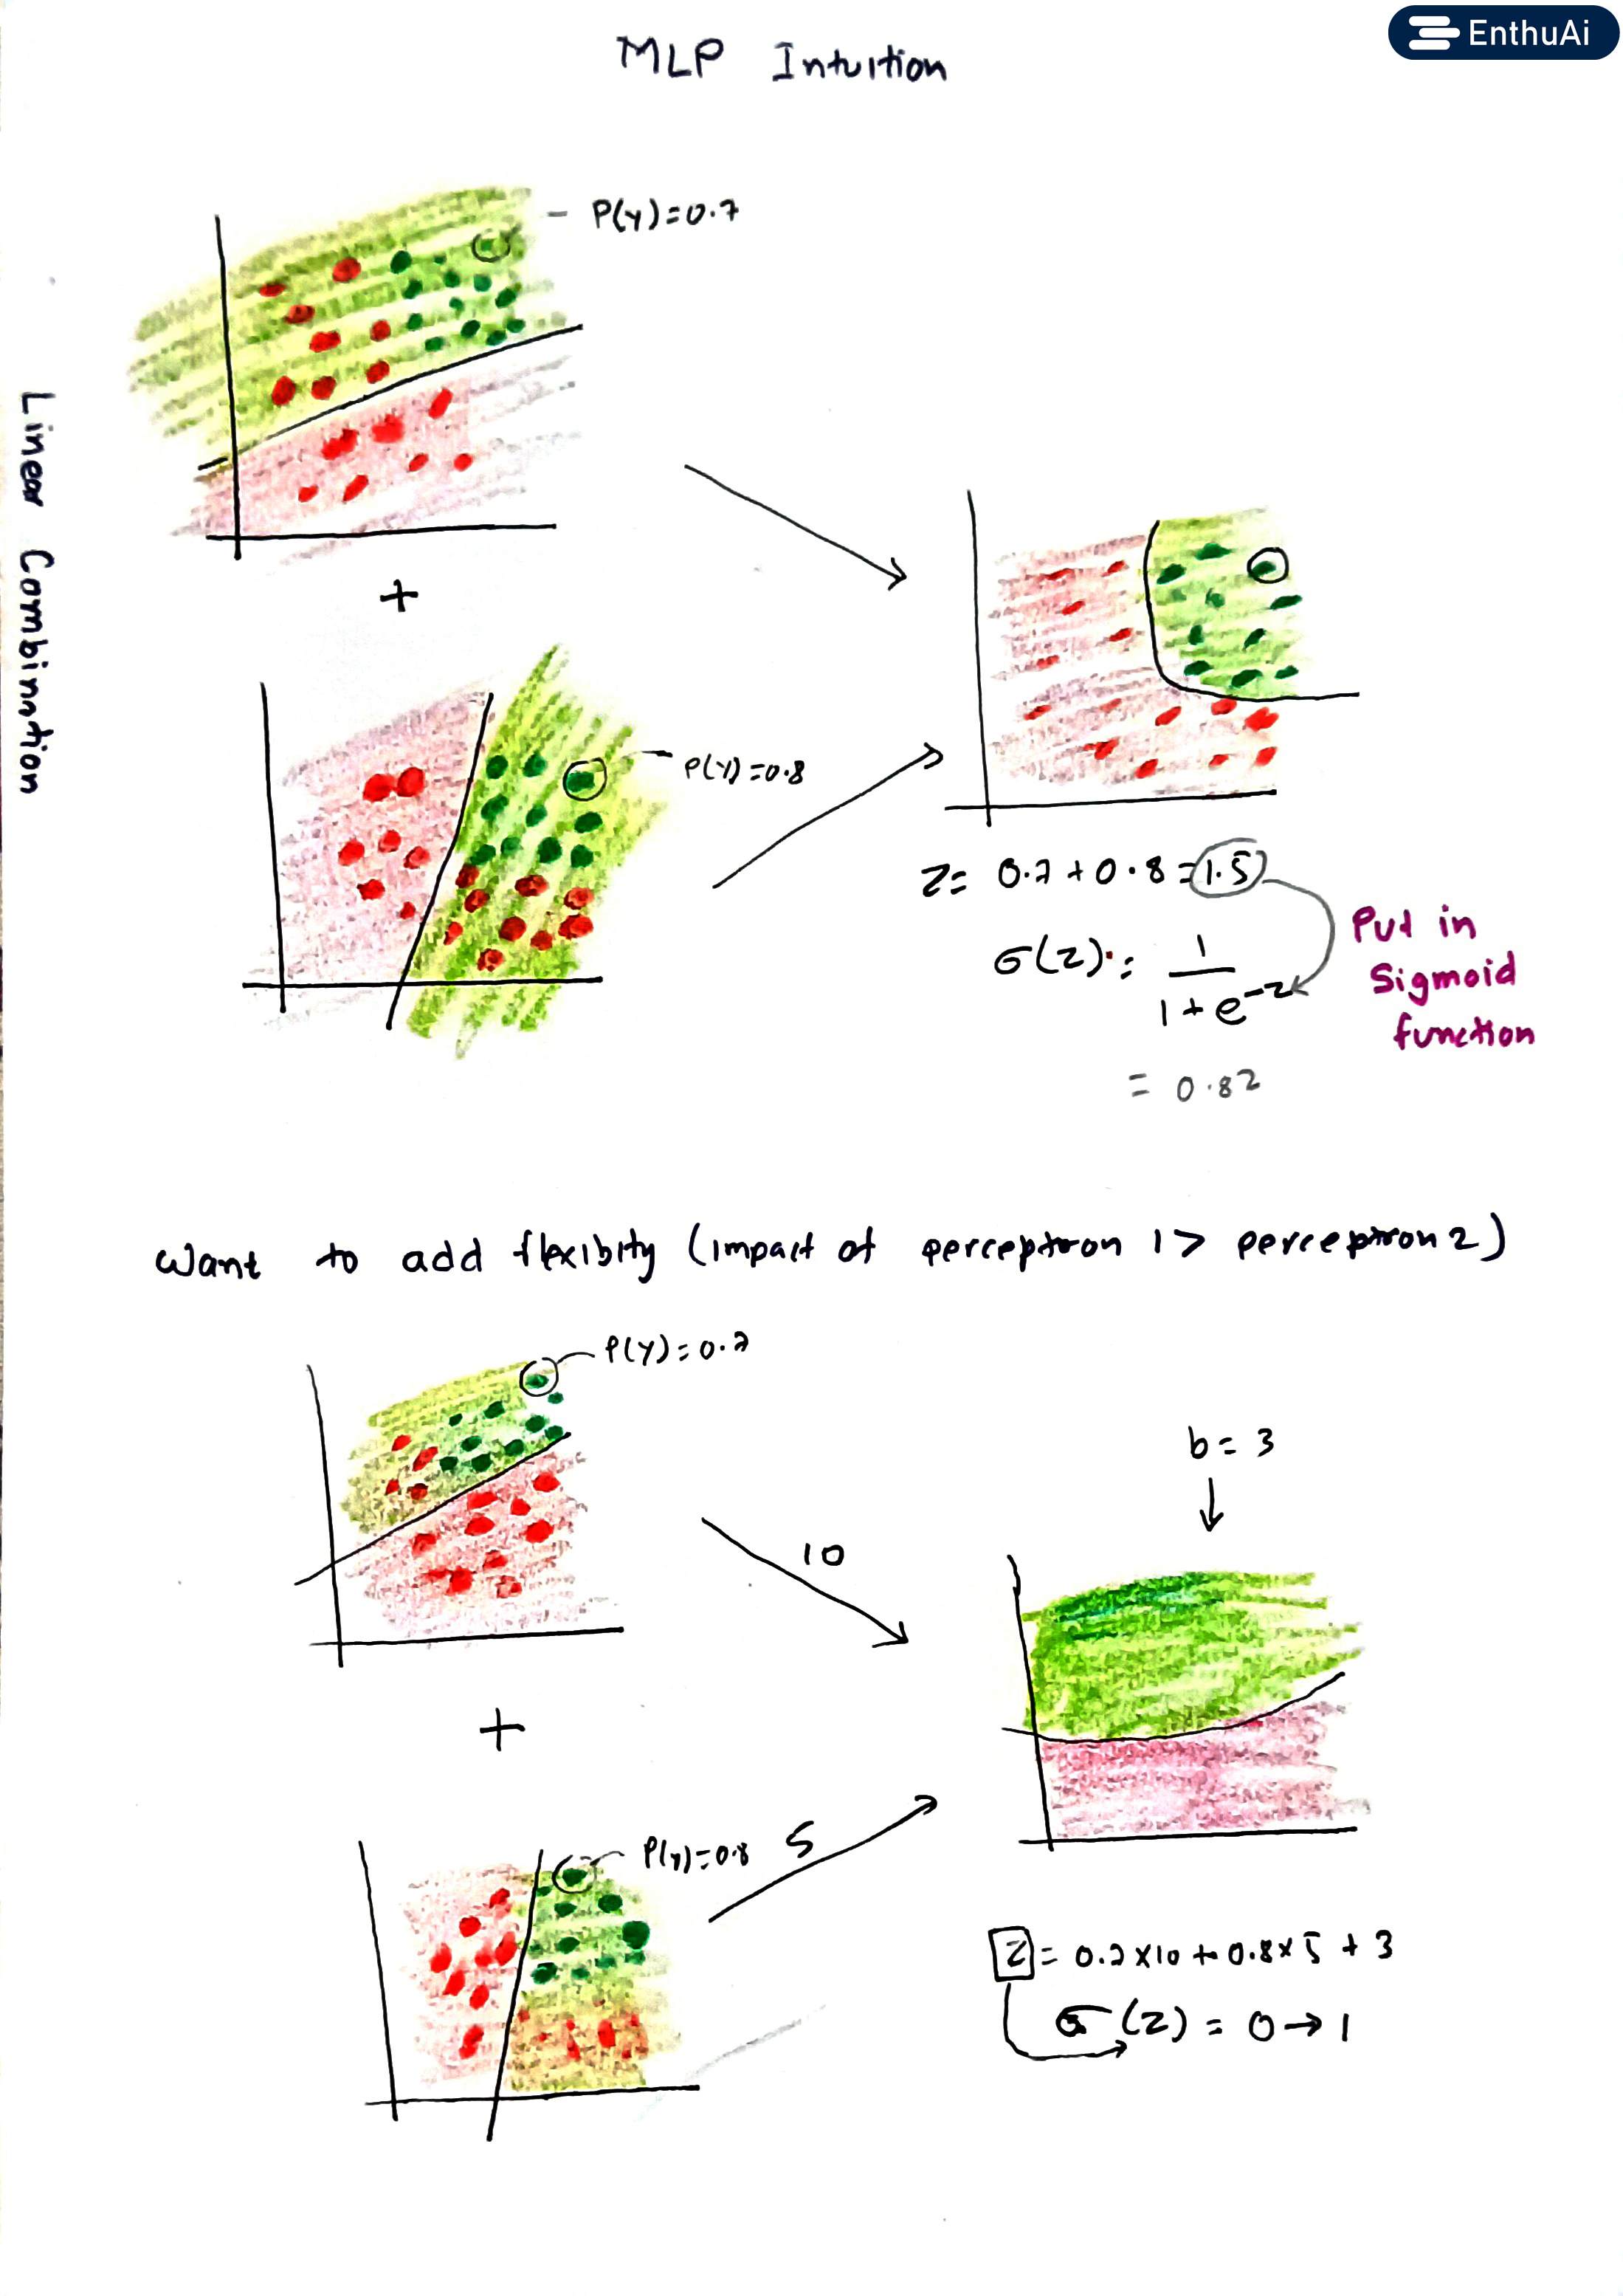 EnthuAi
MLP Intuition
P(Y)=0.7
Linear Combination
+
P(Y)=0.8
Z= 0.7+0.8=1.5
σ(Z)= 1/1+e^-z
Put in
Sigmoid
function
= 0.82
Want to add flexibity (impact of perceptron 1 > perceptron 2)
P(Y)=0.7
b=3
10
+
P(y)=0.8
5
Z = 0.7×10 + 0.8×5 + 3
σ(Z) = 0→1